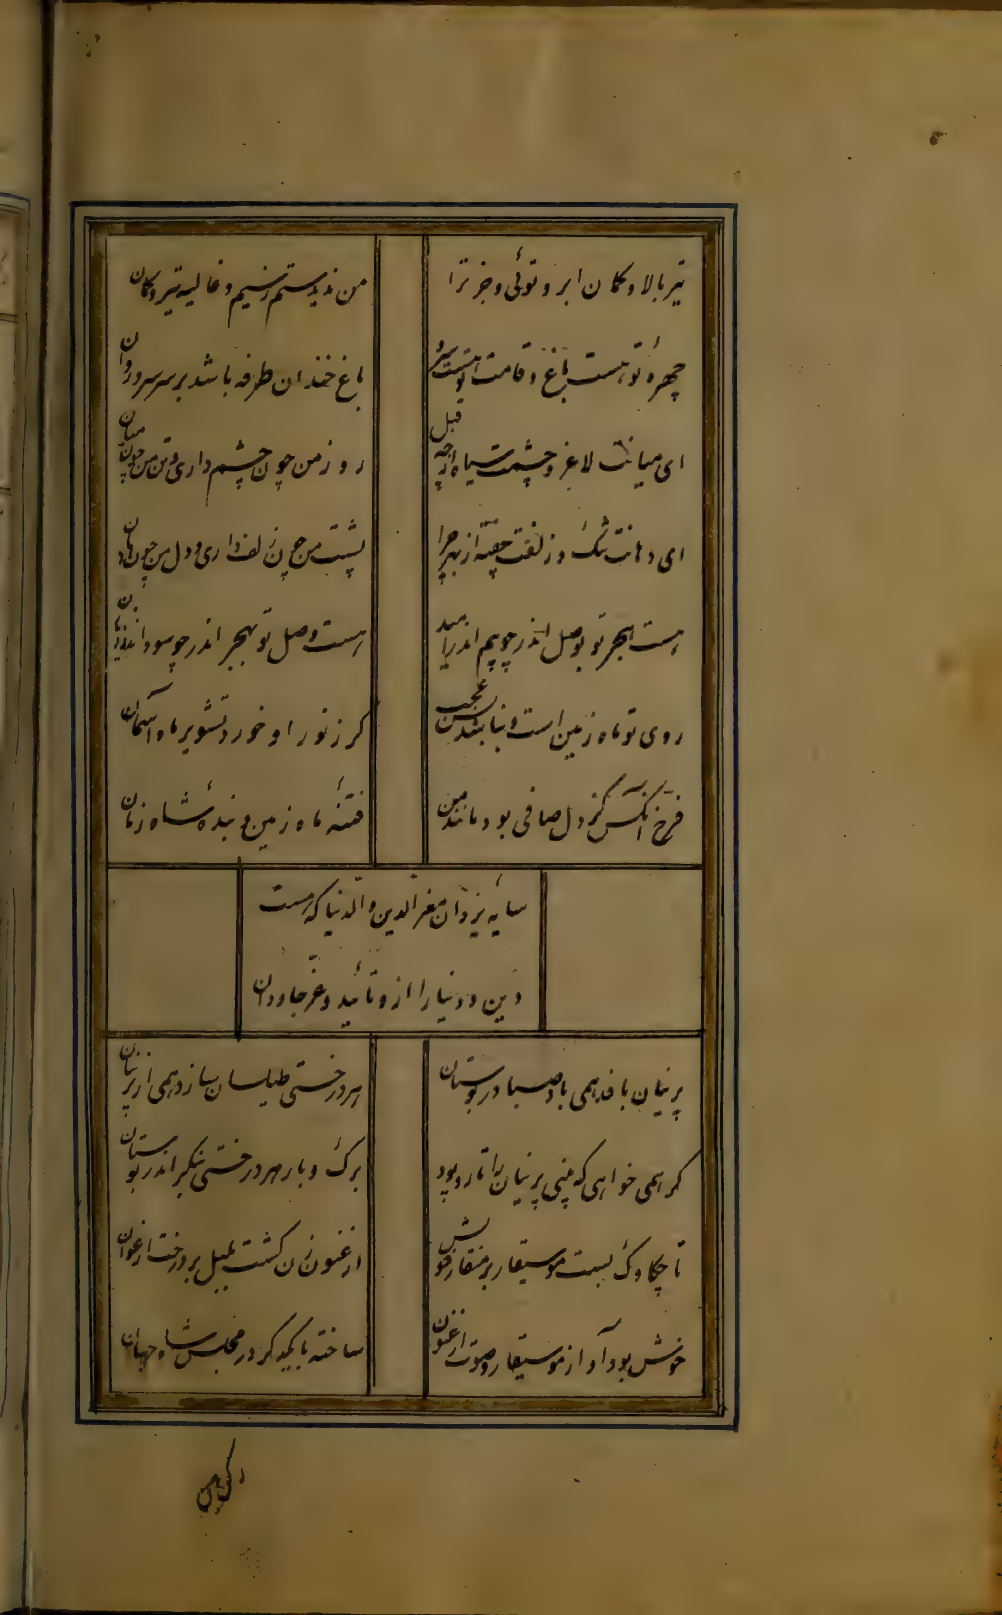 تیر بالا و کمان ابرو توئی و جز ترا
من ندیدستم ز سیم و غالیه تیر و کمان
چهرهٔ تو هست باغ و قامت تو هست سرو
باغ خندان طرفه باشد بر سر سرو روان
ای میانت لاغر و چشمت سیاه از چه قبل
روز من چون چشم داری و تن من چون میان
ای دهانت تنگ و زلفت چفته از بهر چرا
پشت من چون زلف داری و دل من چون دهان
هست هجر تو بوصل اندر چو بیم اندر امید
هست وصل تو بهجر اندر چو سود اندر زیان
روی تو ماه زمین است و نباشد بس عجب
کر ز نور او خورد تشویر ماه آسمان
فرخ آنکس کز دل صافی بود مانند من
فتنهٔ ماه زمین و بندهٔ شاه زمان
سایهٔ یزدان معز الدین و الدنیا که هست
دین و دنیا را از و تأیید و عز جاودان
پرنیان بافد همی باد صبا در بوستان
هر درختی طیلسان سازد همی از پرنیان
کر همی خواهی که بینی پرنیان را تار و پود
برک و بار هر درختی بنکر اندر بوستان
تا چکاوک بست موسیقار بر منقار خویش
ارغنون زن کشت بلبل بر درخت ارغوان
خوش بود آواز موسیقار و صوت ارغنون
ساخته با یکدیکر در مجلس شاه جهان